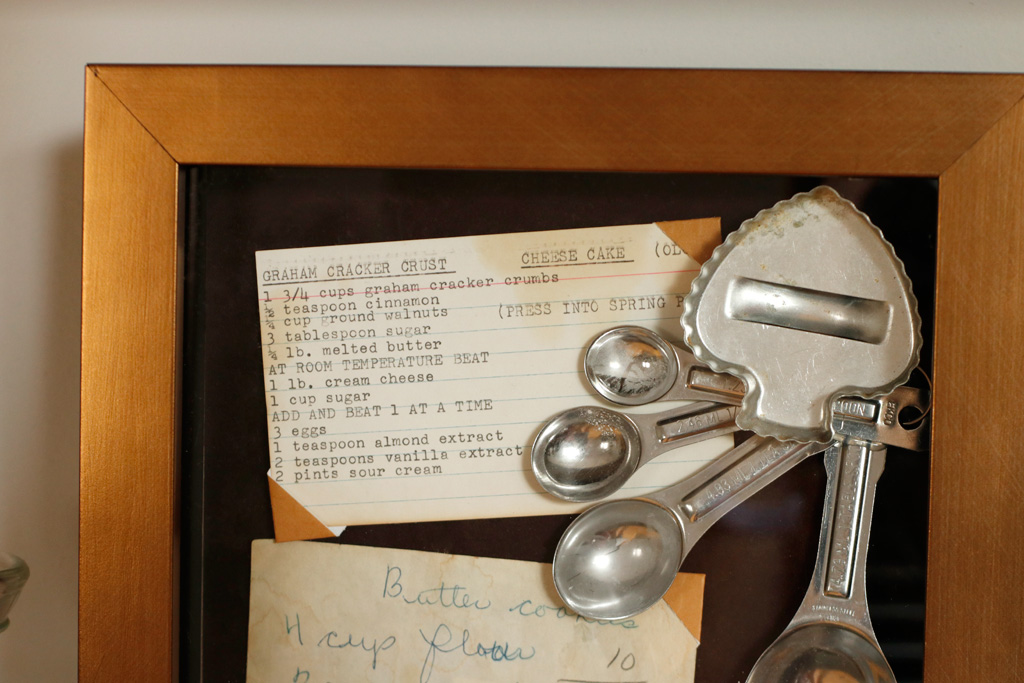 GRAHAM CRACKER CRUST CHEESE CAKE (OL
1 3/4 cups graham cracker crumbs
½ teaspoon cinnamon
cup ground walnuts (PRESS INTO SPRING P
3 tablespoon sugar
¼ lb. melted butter
AT ROOM TEMPERATURE BEAT
1 lb. cream cheese
1 cup sugar
ADD AND BEAT 1 AT A TIME
3 eggs
1 teaspoon almond extract
2 teaspoons vanilla extract
2 pints sour cream
Butter
4 cup flour
10